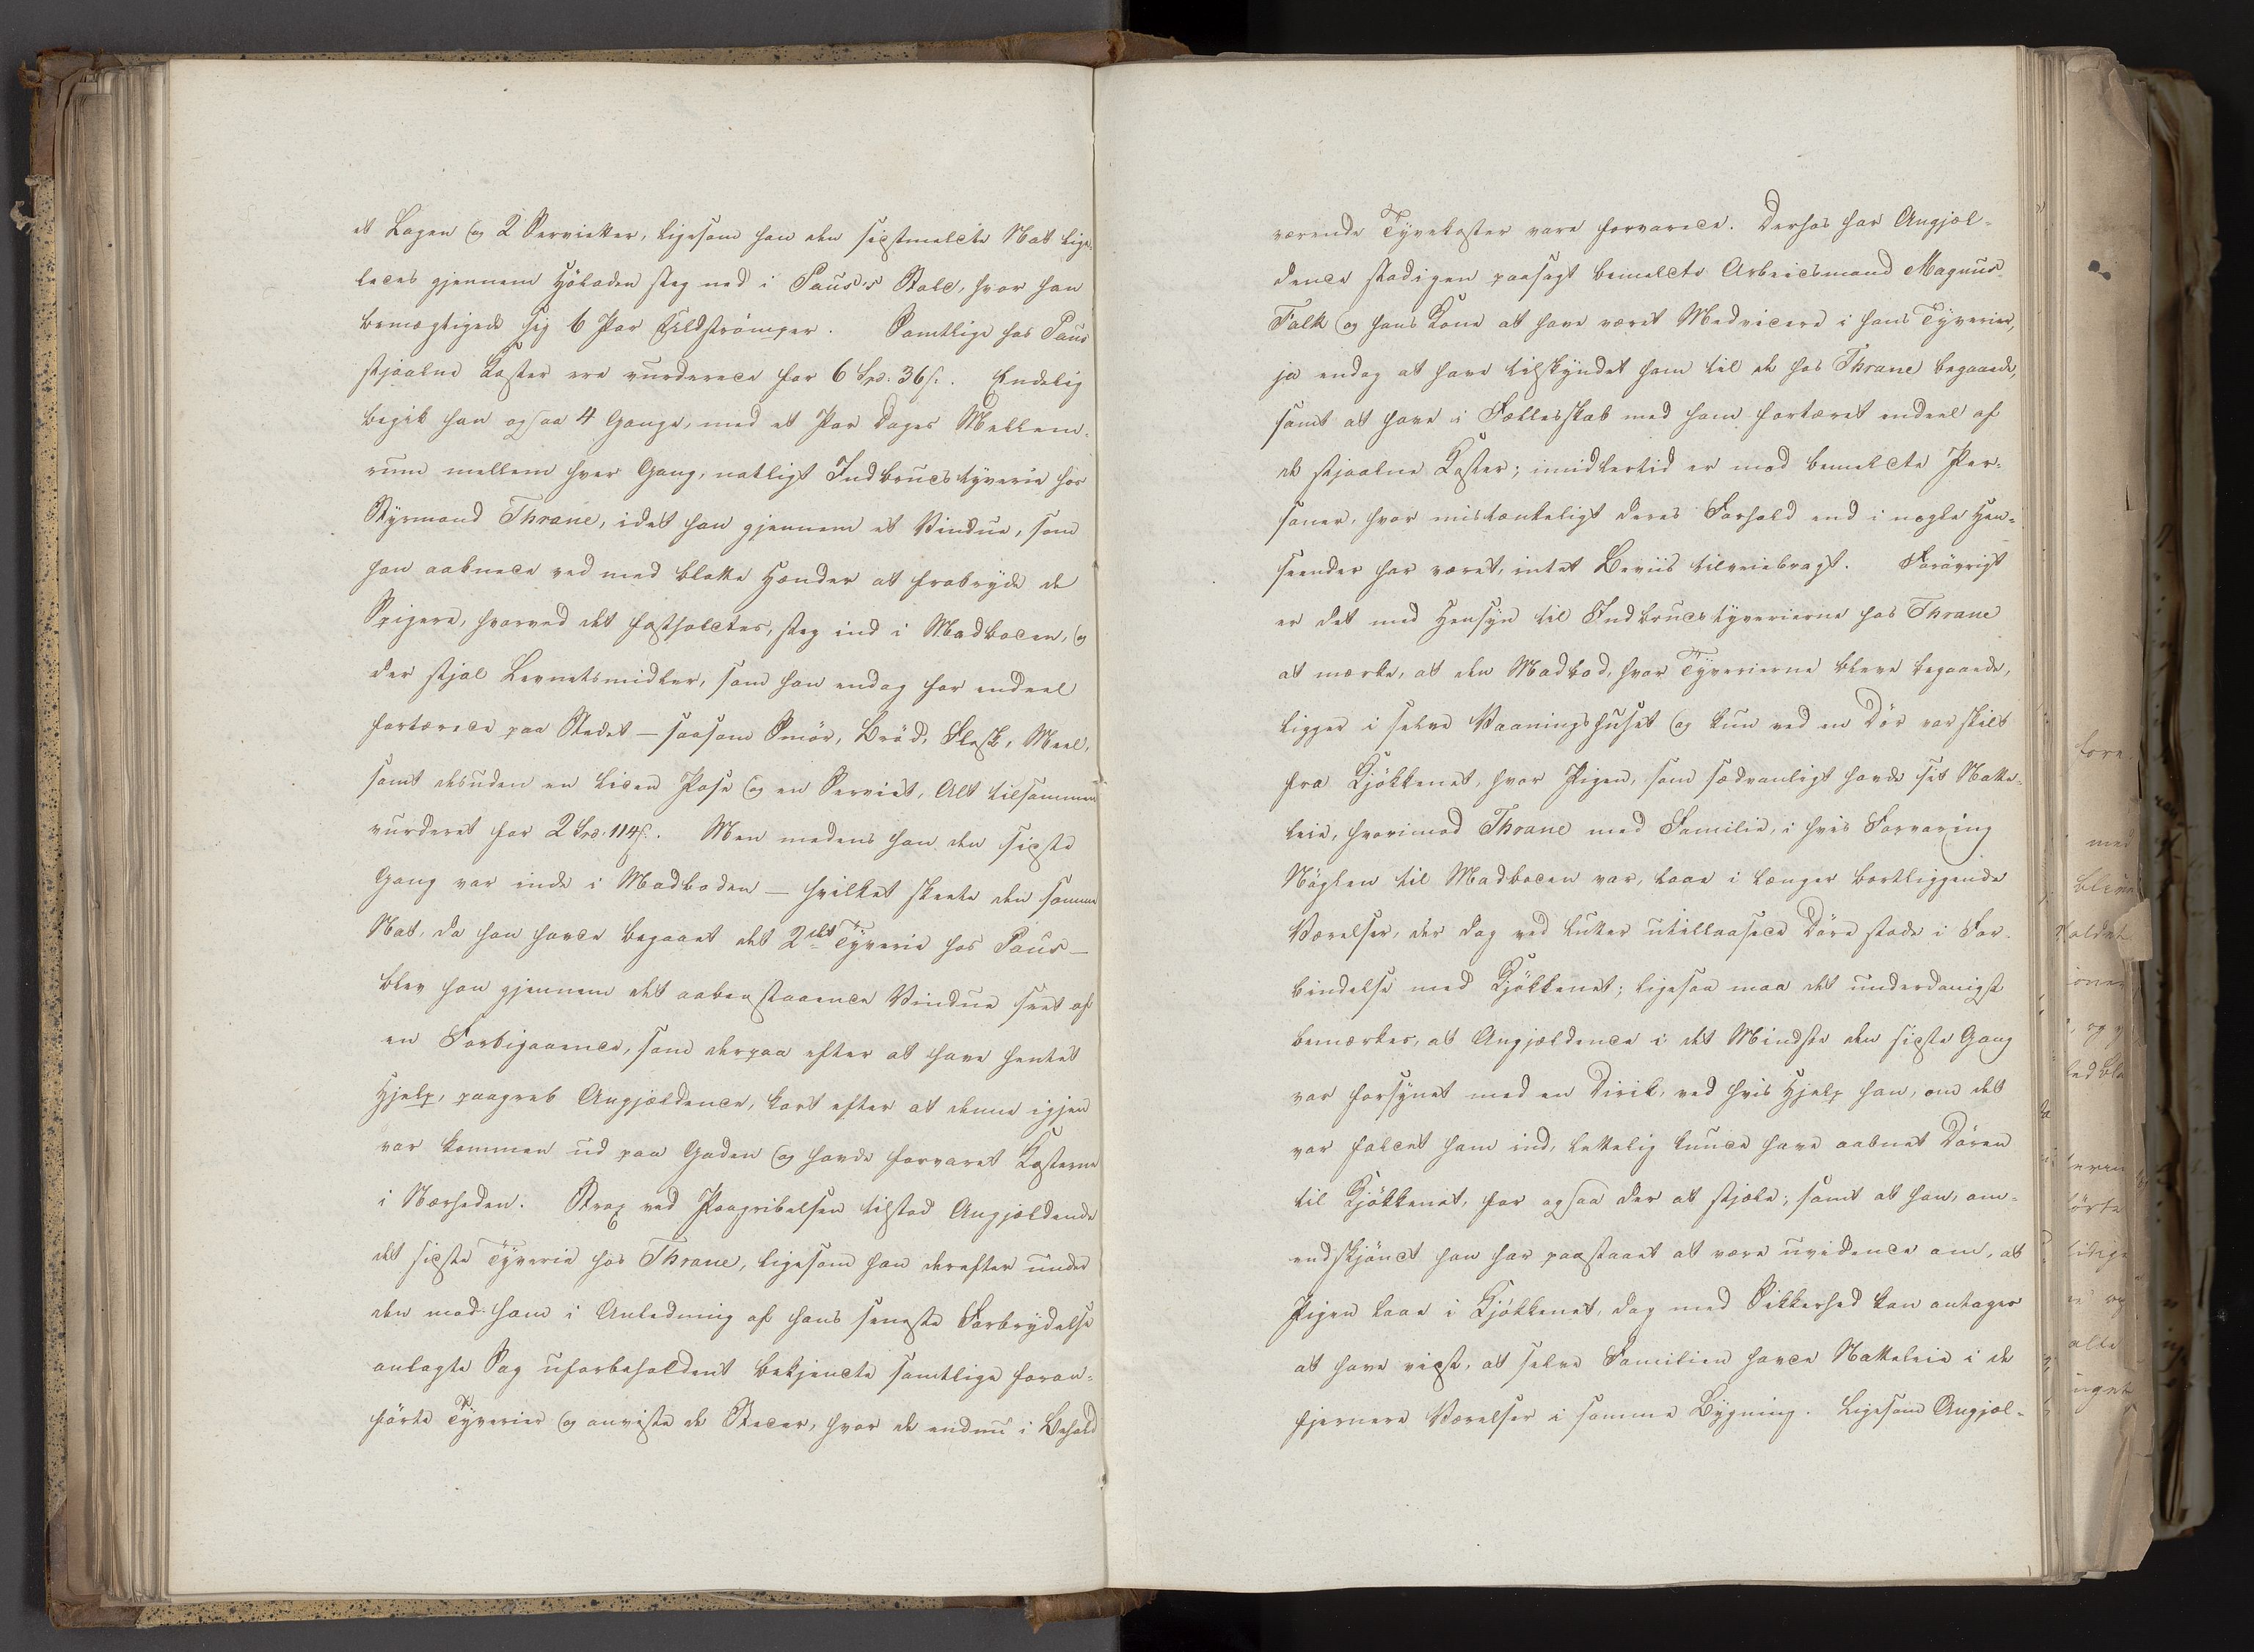 et Lagen og 2 Servietter, ligesom han den sidstmeldte Nat lige-
ledes gjennem Høladen steg ned i Paus's Stald, hvor han
bemægtigede sig 6 Par Uldstrømper. Samtlige hos Paus
stjaalne Koster ere vurderede for 6 Spd: 36 s. Endelig
begik han ogsaa 4 Gange, med et Par Dages Mellem-
rum mellem hver Gang, natligt Indbrudstyverie hos
Styrmand Thrane, idet han gjennem et Vindue, som
han aabnede ved med blotte Hænder at frabryde de
Spigere, hvorved det fastholdtes, steg ind i Madboden, og
der stjal Levnetsmidler, som han endog for endeel
fortærede paa Stedet – saasom Smør, Brød, Flesk, Meel,
samt desuden en liden Pose og en Serviet, Alt tilsammen
vurderet for 2 Spd. 114 s. Men medens han den sidste
Gang var inde i Madboden – hvilket skeete den samme
Nat, da han havde begaaet det 2det Tyverie hos Paus –
blev han gjennem det aabenstaaende Vindue seet af
en Forbigaaende, som derpaa efter at have hentet
Hjelp, paagreb Angjældende, kort efter at denne igjen
var kommen ud paa Gaden og havde forvaret Kosterne
i Nærheden. Strax ved Paagribelsen tilstod Angjældende
det sidste Tyverie hos Thrane, ligesom han derefter under
den mod ham i Anledning af hans seneste Forbrydelse
anlagte Sag uforbeholdent bekjendte samtlige foran-
førte Tyverier og anviste de Steder, hvor de endnu i Behold
værende Tyvekoster vare forvarede. Derhos har Angjæl-
dende stadigen paasagt bemeldte Arbeidsmand Magnus
Falk og hans Kone at have været Medvidere i hans Tyverier,
ja endog at have tilskyndet ham til de hos Thrane begaaede,
samt at have i Fællesskab med ham fortæret endeel af
de stjaalne Koster; imidlertid er mod bemeldte Per-
soner, hvor mistænkeligt deres Forhold end i nogle Hen-
seender har været, intet Beviis tilveiebragt. Forøvrigt
er det med Hensyn til Indbrudstyverierne hos Thrane
at mærke, at den Madbod, hvor Tyverierne bleve begaaede,
ligger i selve Vaaningshuset og kun ved en Dør var skilt
fra Kjøkkenet, hvor Pigen, som sædvanligt havde sit Natte-
leie, hvorimod Thrane med Familie, i hvis Forvaring
Nøglen til Madboden var, laae i længer bortliggende
Værelser, der dog ved lutter utillaasede Døre stode i For-
bindelse med Kjøkkenet; ligesaa maa det underdanigst
bemærkes, at Angjældende i det Mindste den sidste Gang
var forsynet med en Dirik, ved hvis Hjelp han, om det
var faldet ham ind, lettelig kunde have aabnet Døren
til Kjøkkenet, for ogsaa der at stjæle; samt at han, om-
endskjøndt han har paastaaet at være uvidende om, at
Pigen laae i Kjøkkenet, dog med Sikkerhed kan antages
at have vidst, at selve Familien havde Natteleie i de
fjernere Værelser i samme Bygning. Ligesom Angjæl-